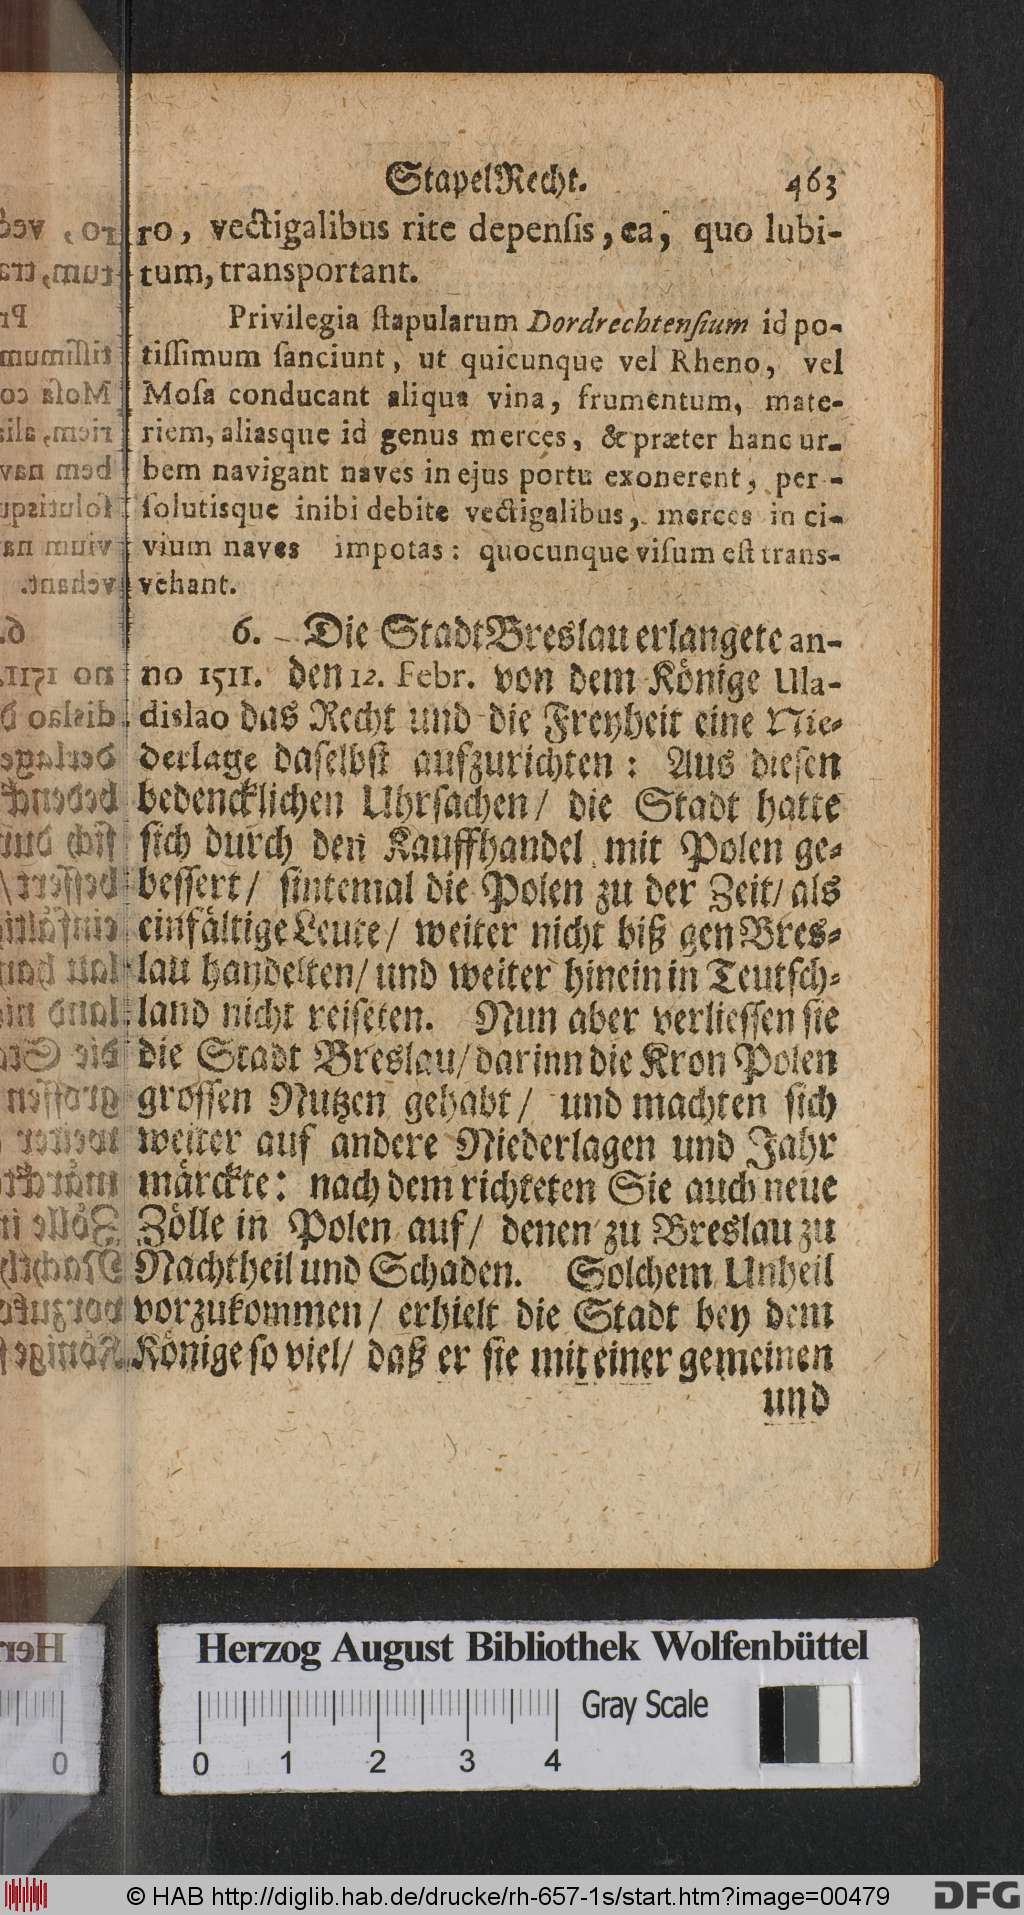 StapelRecht. 463
ro, vectigalibus rite depensis, ea, quo lubi-
tum, transportant.
Privilegia stapularum Dordrechtensium id po-
tissimum sanciunt, ut quicunque vel Rheno, vel
Mosa conducant aliqua vina, frumentum, mate-
riem, aliasque id genus merces, & præter hanc ur-
bem navigant naves in ejus portu exonerent, per-
solutisque inibi debite vectigalibus, merces in ci-
vium naves impotas: quocunque visum est trans-
vehant.
6. Die Stadt Breslau erlangete an-
no 1511. den 12. Febr. von dem Könige Ula-
dislao das Recht und die Freyheit eine Nie-
derlage daselbst aufzurichten: Aus diesen
bedencklichen Uhrsachen/ die Stadt hatte
sich durch den Kauffhandel mit Polen ge-
bessert/ sintemal die Polen zu der Zeit/ als
einfältige Leute/ weiter nicht biß gen Bres-
lau handelten/ und weiter hinein in Teutsch-
land nicht reiseten. Nun aber verliessen sie
die Stadt Breslau/ darinn die Kron Polen
grossen Nutzen gehabt/ und machten sich
weiter auf andere Niederlagen und Jahr
märckte: nach dem richteten Sie auch neue
Zölle in Polen auf/ denen zu Breslau zu
Nachtheil und Schaden. Solchem Unheil
vorzukommen/ erhielt die Stadt bey dem
Könige so viel/ daß er sie mit einer gemeinen
und
Herzog August Bibliothek Wolfenbüttel
Gray Scale
0 1 2 3 4
© HAB http://diglib.hab.de/drucke/rh-657-1s/start.htm?image=00479
DFG